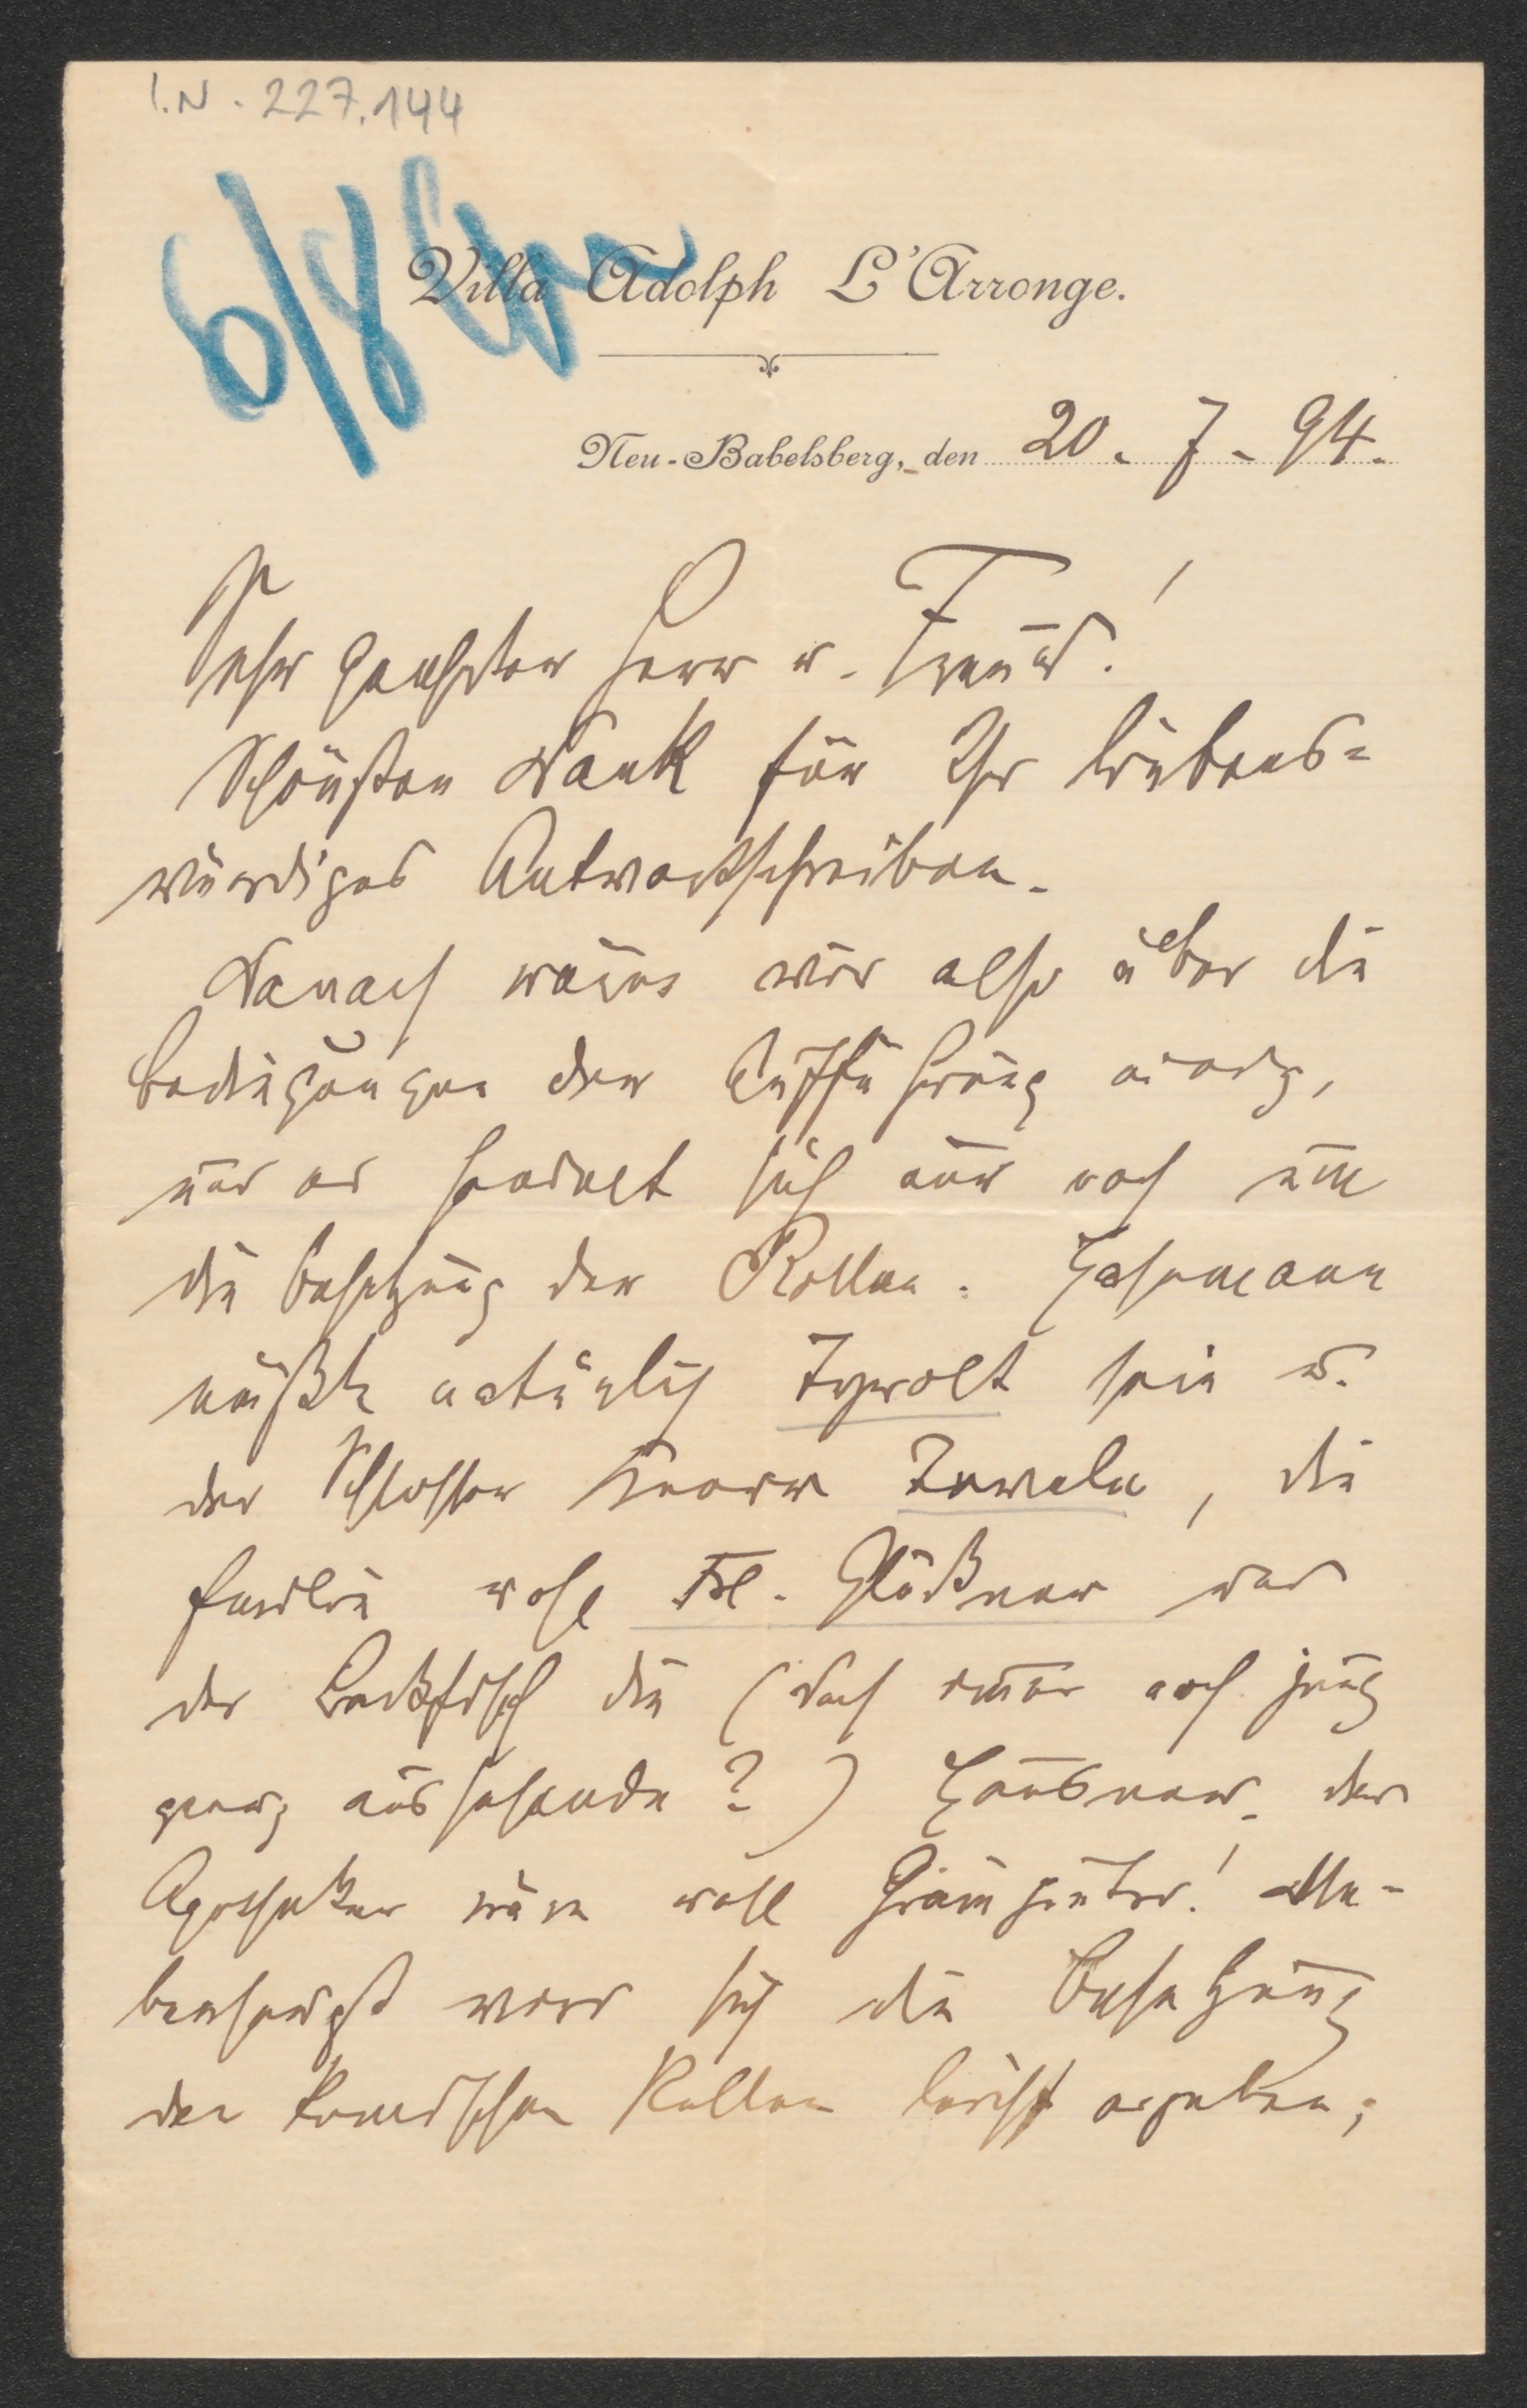 I.N. 227.144
6/8
Villa Adolph L'Arronge.
Neu-Babelsberg, den 20. 7. 94.
Sehr geehrter Herr u. Freund!
Schönsten Dank für Ihr liebens-
würdiges Antwortschreiben.
Danach wären wir also über die
Bedingungen der Aufführung einig,
und es handelt sich nur noch um
die Besetzung der Rollen. Hasemann
müßte natürlich Tyrolt sein u.
der Schlosser Knorr Tewele, die
Emilie wohl Frl. Glößner und
der Backfisch die (doch immer noch jung
genug aussehende?) Hausner. der
Apotheker wäre wohl Greisnegger! Alle-
wird sich die Besetzung
der komischen Rollen leicht ergeben;